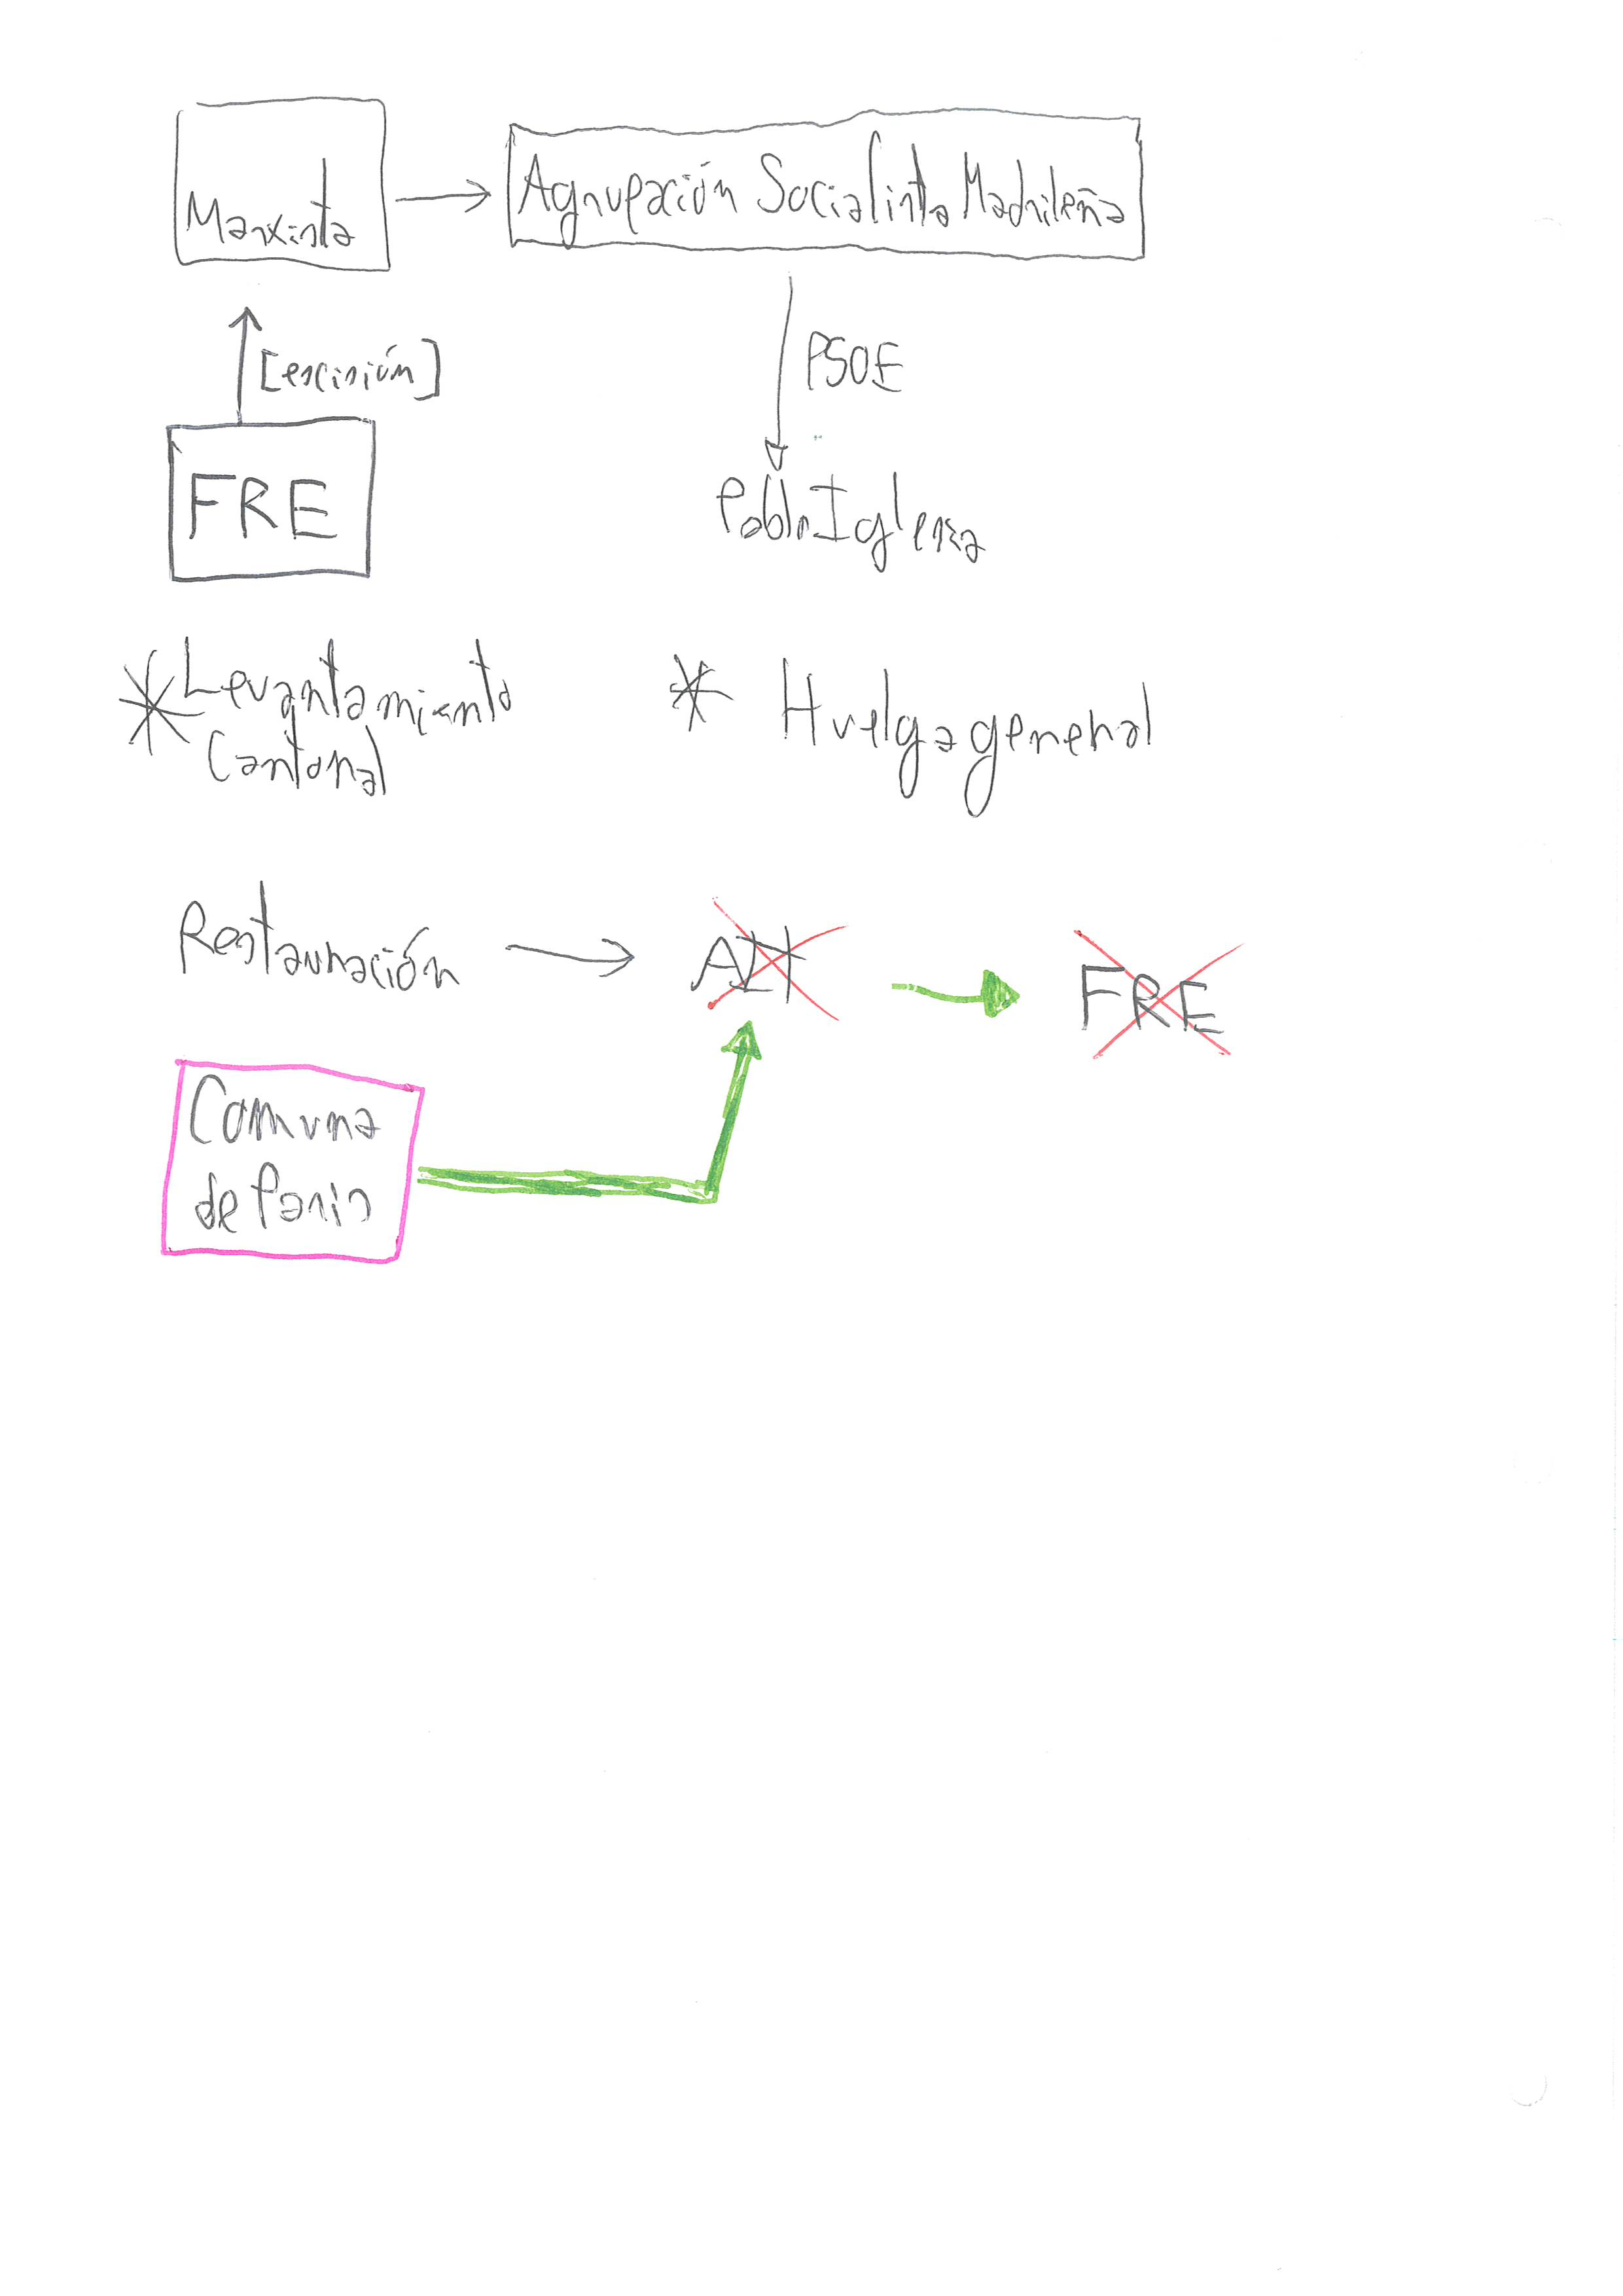 Marxista
Agrupación Socialista Madrileña
[escisión]
PSOE
FRE
Pablo Iglesia
* Levantamiento
Cantonal
* Huelga general
Restauración
AIT
FRE
Comuna
de Paris